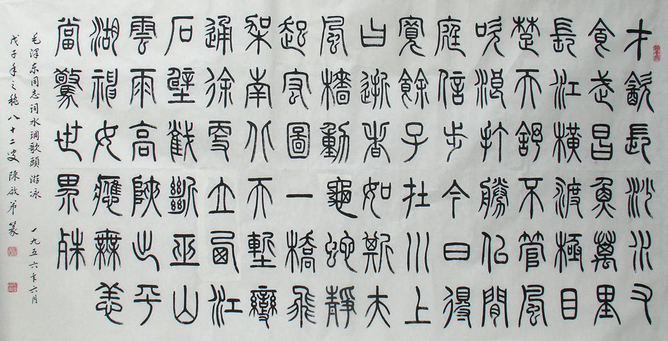 才飲長沙水又
食武昌魚萬里
長江橫渡極目
楚天舒不管風
吹浪打勝似閒
庭信步今日得
寬餘子在川上
曰逝者如斯夫
風檣動龜蛇靜
起宏圖一橋飛
架南北天塹變
通途更立西江
石壁截斷巫山
雲雨高峽出平
湖神女應無恙
當驚世界殊
毛澤东同志词水调歌頭 游泳 一九五六年六月
戊子年之秋八十二叟陳 篆